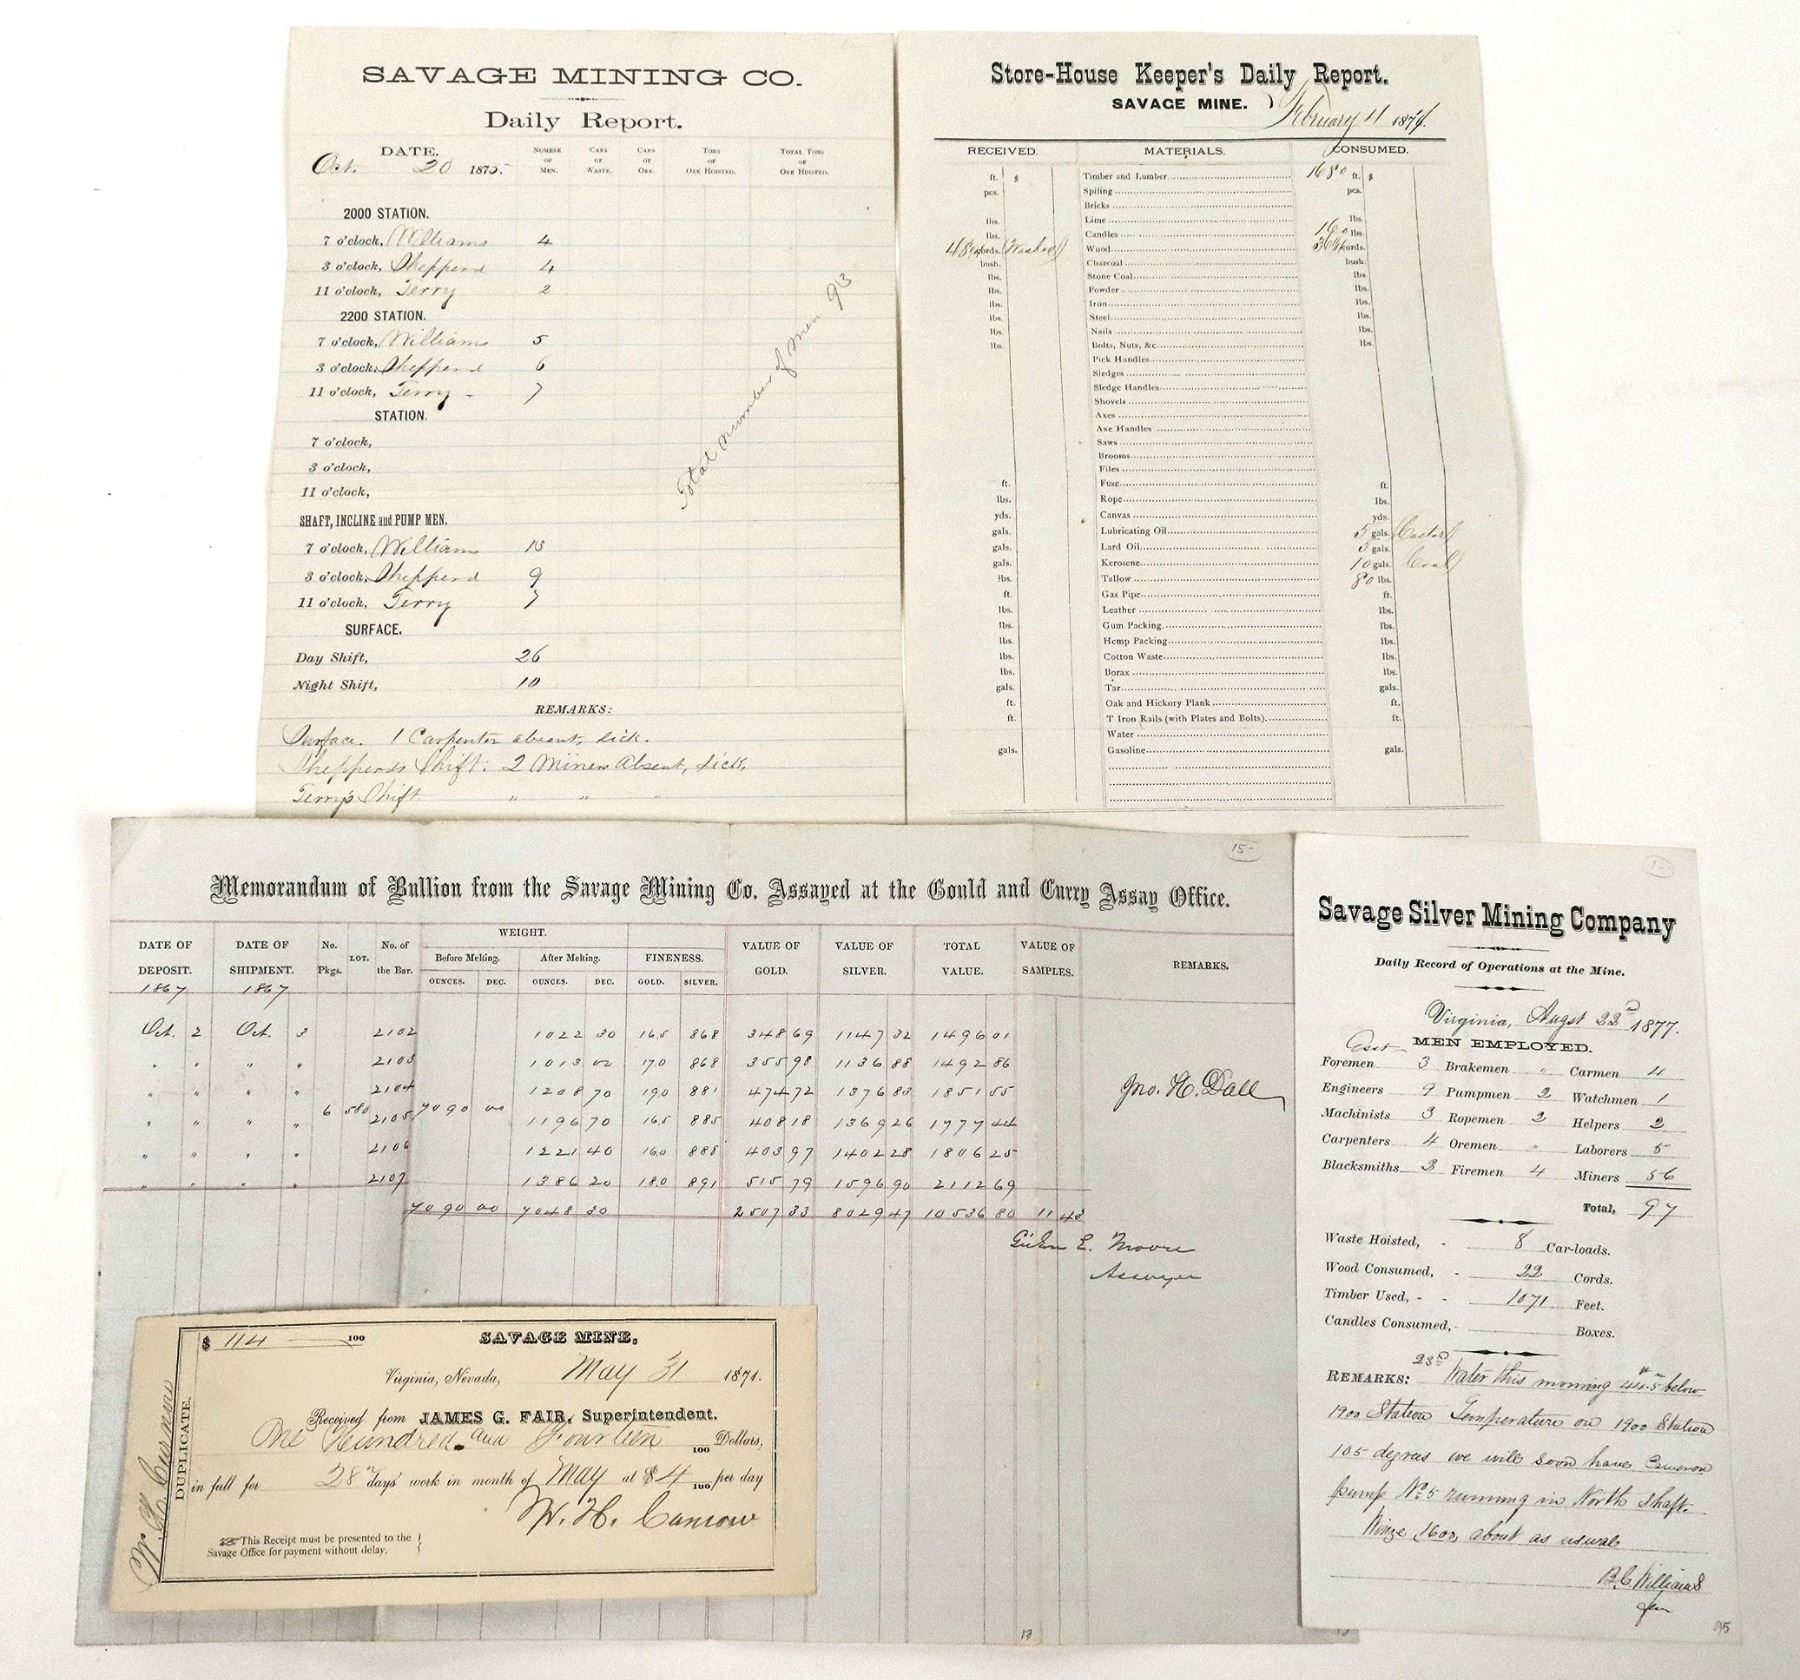 SAVAGE MINING CO.
Daily Report.
DATE. NUMBER OF MEN. CARS OF WASTE. CARS OF ORE. TONS OF ORE HOISTED. TOTAL TONS OF ORE HOISTED.
Oct. 20 1875.
2000 STATION.
7 o'clock, Williams 4
3 o'clock, Shepperd 4
11 o'clock, Terry 2
2200 STATION.
7 o'clock, Williams 5
3 o'clock, Shepperd 6
11 o'clock, Terry - 7
STATION.
7 o'clock,
3 o'clock,
11 o'clock,
SHAFT, INCLINE and PUMP MEN.
7 o'clock, Williams 13
3 o'clock, Shepperd 9
11 o'clock, Terry 7
SURFACE.
Day Shift, 26
Night Shift, 10
Total number of men 93
REMARKS:
Surface. 1 Carpenter absent, sick.
Shepperds Shift: 2 Miners Absent, sick,
Terry's Shift " " "
Store-House Keeper's Daily Report.
SAVAGE MINE. February 11 187
RECEIVED. MATERIALS. CONSUMED.
ft. $ Timber and Lumber 1680 ft. $
pcs. Spiling pcs.
Bricks
lbs. Lime lbs.
lbs. Candles 160 lbs.
cords. Wood cords.
bush. Charcoal bush.
lbs. Stone Coal lbs.
lbs. Powder lbs.
lbs. Iron lbs.
lbs. Steel lbs.
lbs. Nails lbs.
lbs. Bolts, Nuts, &c. lbs.
Pick Handles
Sledges
Sledge Handles
Shovels
Axes
Axe Handles
Saws
Brooms
Files
ft. Fuse ft.
lbs. Rope lbs.
yds. Canvas yds.
gals. Lubricating Oil 5 gals. (Castor)
gals. Lard Oil 5 gals.
gals. Kerosene 10 gals. (Coal)
lbs. Tallow 80 lbs.
ft. Gas Pipe ft.
lbs. Leather lbs.
lbs. Gum Packing lbs.
lbs. Hemp Packing lbs.
lbs. Cotton Waste lbs.
lbs. Borax lbs.
gals. Tar gals.
ft. Oak and Hickory Plank ft.
ft. T Iron Rails (with Plates and Bolts) ft.
Water
gals. Gasoline gals.
15-
Memorandum of Bullion from the Savage Mining Co. Assayed at the Gould and Curry Assay Office.
DATE OF DEPOSIT. DATE OF SHIPMENT. No. Pkgs. LOT. No. of the Bar. WEIGHT. Before Melting. After Melting. FINENESS. VALUE OF GOLD. VALUE OF SILVER. TOTAL VALUE. VALUE OF SAMPLES. REMARKS.
OUNCES. DEC. OUNCES. DEC. GOLD. SILVER.
1867 1867
Oct. 2 Oct. 3 2102 1022 30 16.5 868 348 69 1147 32 1496 01
" " " " 2103 1013 00 17.0 868 355 98 1136 88 1492 86
" " " " 2104 1208 70 19.0 881 474 72 1376 83 1851 55
" " " " 6 580 2105 7090 00 1196 70 16.5 885 408 18 1369 26 1777 44
" " " " 2106 1221 40 16.0 888 403 97 1402 28 1806 25
" " " " 2107 1386 20 18.0 891 515 79 1596 90 2112 69
7090 00 7048 30 2507 33 8029 47 10536 80 11 43
Jno. H. Dall
E. Moore
Assayer
13
$ 114 100 SAVAGE MINE,
Virginia, Nevada, May 31 1871.
Received from JAMES G. FAIR, Superintendent.
One Hundred and Fourteen 100 Dollars,
in full for 28 days' work in month of May at $4 100 per day
W. H. Camrow
This Receipt must be presented to the
Savage Office for payment without delay.
DUPLICATE.
W. H. Camrow
10-
Savage Silver Mining Company
Daily Record of Operations at the Mine.
Virginia, Augst 22d 1877.
MEN EMPLOYED.
Foremen 3 Brakemen " Carmen 4
Engineers 9 Pumpmen 2 Watchmen 1
Machinists 3 Ropemen 2 Helpers 2
Carpenters 4 Oremen " Laborers 5
Blacksmiths 3 Firemen 4 Miners 56
Total, 97
Waste Hoisted, - 8 Car-loads.
Wood Consumed, - 22 Cords.
Timber Used, - - 1071 Feet.
Candles Consumed, - Boxes.
23d
REMARKS: Water this morning 44.5 below
1900 Station Temperature on 1900 Station
105 degrees we will soon have Cameron
pump No 5 running in North Shaft.
Winze 1600, about as usual
B.C. Williams
95